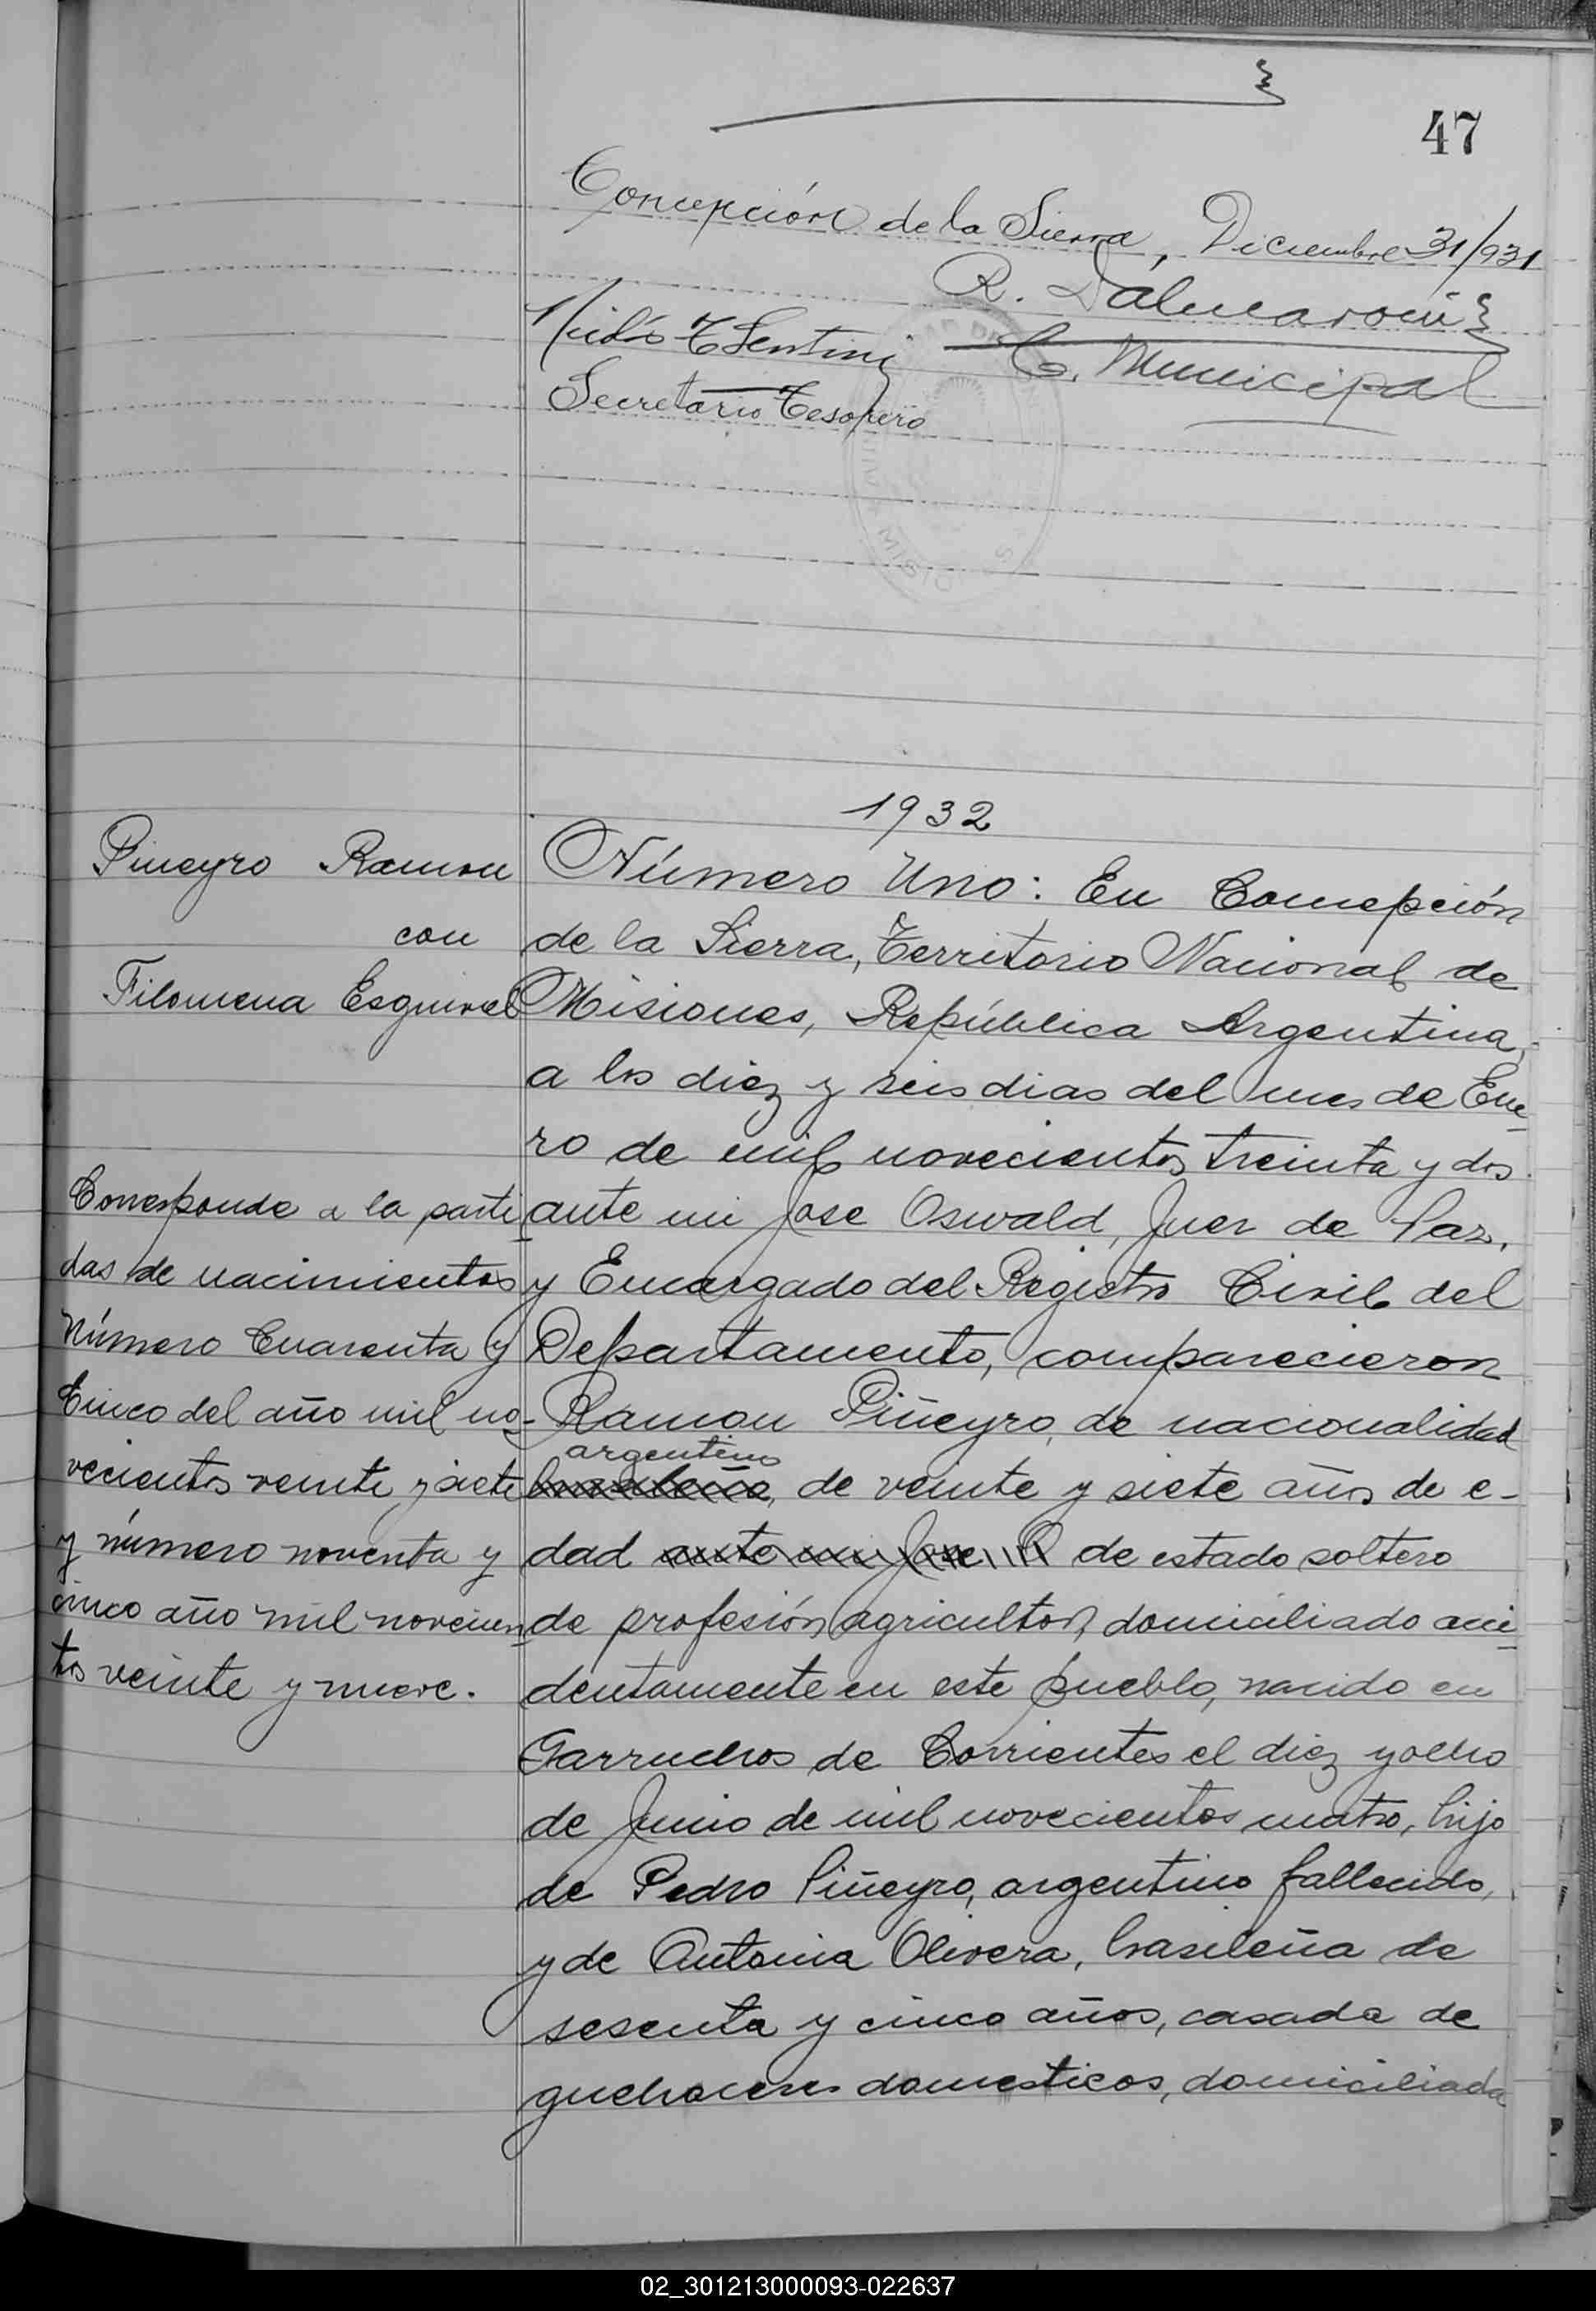 47
Concepción de la Sierra, Diciembre 31/931
R. Dalmaroni
C. Municipal
Sentini
Secretario Tesorero
1932
Pineyro Ramon
con
Filomena Esquivel
Corresponde a la parti
das de nacimientos
Número Cuarenta y
Cinco del año mil no-
vecientos veinte y siete
y número noventa y
cinco año mil novecien
tos veinte y nueve.
Número Uno: En Concepción
de la Sierra, Territorio Nacional de
Misiones, República Argentina,
a los diez y seis dias del mes de Ene
ro de mil novecientos treinta y dos
ante mi Jose Oswald, Juez de Paz,
y Encargado del Registro Civil del
Departamento, comparecieron
Ramon Piñeyro, de nacionalidad
argentino
brasileña, de veinte y siete años de e-
dad ante mi Jose O de estado soltero
de profesión agricultor, domiciliado acci
dentamente en este pueblo, nacido en
Garruchos de Corrientes el diez y ocho
de Junio de mil novecientos cuatro, hijo
de Pedro Piñeyro, argentino fallecido,
y de Antonia Olivera, brasileña de
sesenta y cinco años, casada de
quehaceres domesticos, domiciliada
02_301213000093-022637